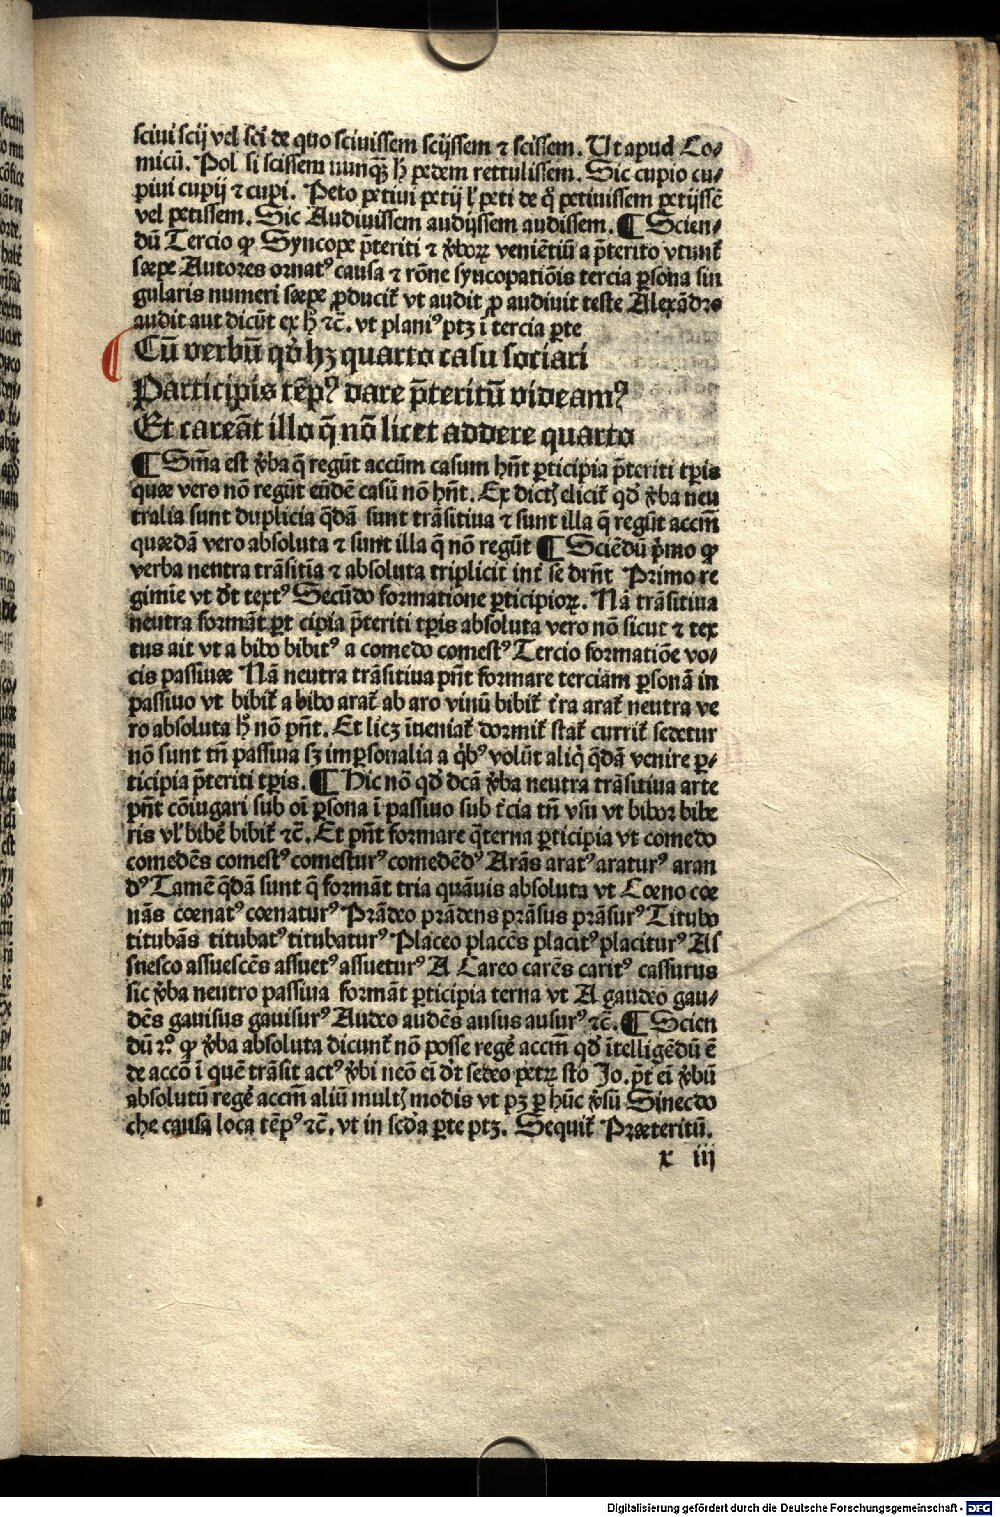 sciui scij vel sci de quo sciuissem scijssem ⁊ scissem. Ut apud Co⸗
micū. Pol si scissem nunqꝫ ħ pedem rettulissem. Sic cupio cu⸗
piui cupij ⁊ cupi. Peto petiui petij ł peti de q̊ petiuissem petijssē
vel petissem. Sic Audiuissem audijssem audissem. ¶ Scien⸗
dū Tercio ꝙ Syncope p̄teriti ⁊ v̓boꝝ veniētiū a p̄terito vtunt᷑
sæpe Autores ornatꝰ causa ⁊ rōne syncopatiōis tercia ꝑsona sin
gularis numeri sæpe ꝓducit᷑ vt audit ꝓ audiuit teste Alexādro
audit aut dicūt ex ħ ⁊c̄. vt planiꝰ ptꝫ ī tercia ꝑte
Cū verbū qd̓ hꝫ quarto casu sociari
Participis tēpꝰ dare p̄teritū videamꝰ
Et careāt illo q̄ nō licet addere quarto
¶ Sm̄a est v̓ba q̄ regūt accūm casum hn̄t ꝑticipia p̄teriti tꝑis
quæ vero nō regūt eūdē casū nō hn̄t. Ex dictꝭ elicit᷑ qd̓ v̓ba neu
tralia sunt duplicia q̄dā sunt trāsitiua ⁊ sunt illa q̄ regūt accm̄
quædā vero absoluta ⁊ sunt illa q̄ nō regūt ¶ Sciēdū p̓mo ꝙ
verba neutra trāsitīa ⁊ absoluta triplicit̓ int̓ se drn̄t Primo re
gimīe vt d̓t textꝰ Secūdo formatione ꝑticipioꝝ. Nā trāsitiua
neutra formāt ꝑt cipia p̄teriti tꝑis absoluta vero nō sicut ⁊ tex
tus ait vt a bibo bibitꝰ a comedo comestꝰ Tercio formatiōe vo⸗
cis passiuæ Nā neutra trāsitiua pn̄t formare terciam ꝑsonā in
passiuo vt bibit᷑ a bibo arat᷑ ab aro vinū bibit᷑ t̓ra arat᷑ neutra ve
ro absoluta ħ nō pn̄t. Et licꝫ īueniat᷑ dormit᷑ stat᷑ currit᷑ sedetur
nō sunt tn̄ passiua sꝫ imꝑsonalia a q̓bꝰ volūt aliq̓ q̄dā venire ꝑ⸗
ticipia p̄teriti tꝑis. ¶ Hic nō qd̓ dcā v̓ba neutra trāsitiua arte
pn̄t cōiugari sub oī ꝑsona ī passiuo sub t̓cia tn̄ vsu vt bibor bibe
ris vł bibē bibit᷑ ⁊c̄. Et pn̄t formare q̄terna ꝑticipia vt comedo
comedēs comestꝰ comesturꝰ comedēdꝰ Arās aratꝰ araturꝰ aran
dꝰ Tamē q̄dā sunt q̄ formāt tria quāuis absoluta vt Cœno cœ
nās cœnatꝰ cœnaturꝰ Prādeo prādens prāsus prāsurꝰ Titubo
titubās titubatꝰ titubaturꝰ Placeo placēs placitꝰ placiturꝰ As
suesco assuescēs assuetꝰ assueturꝰ A Careo carēs caritꝰ cassurus
sic v̓ba neutro passiua formāt ꝑticipia terna vt A gaudeo gau⸗
dēs gauisus gauisurꝰ Audeo audēs ausus ausurꝰ ⁊c̄. ¶ Scien
dū 2º ꝙ v̓ba absoluta dicunt᷑ nō posse regē accm̄ qd̓ ītelligēdū ē
de accō ī quē trāsit actꝰ v̓bi neō eī d̓t sedeo petrꝫ sto Jo. p̄t eī v̓bū
absolutū regē accm̄ aliū multꝭ modis vt pꝫ ꝑ hūc v̓sū Sinecdo
che causa loca tēpꝰ ⁊c̄. vt in scd̓a ꝑte ptꝫ. Sequit᷑ Præteritū.
x iij
Digitalisierung gefördert durch die Deutsche Forschungsgemeinschaft - DFG